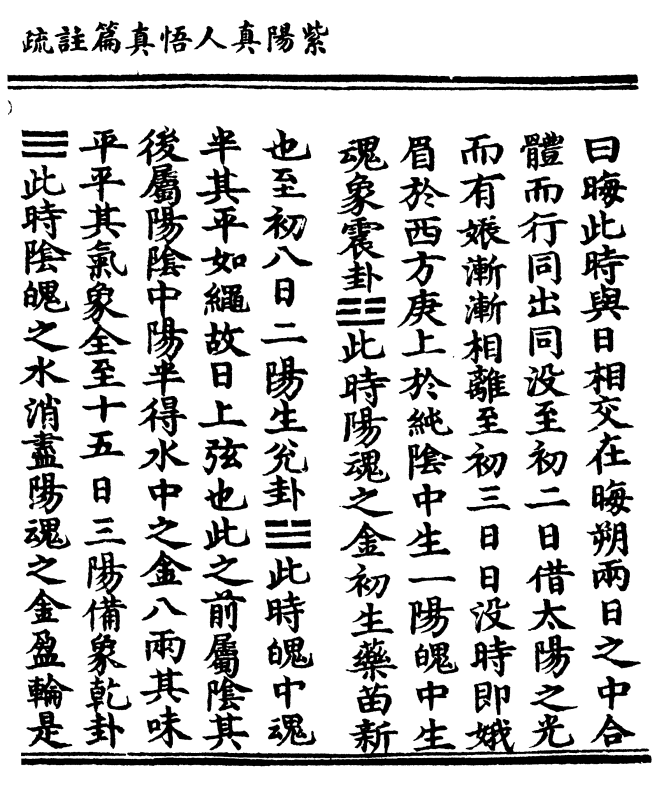 紫陽真人悟真篇註疏
曰晦此時與日相交在晦朔兩日之中合
體而行同出同没至初二日借太陽之光
而有娠漸漸相離至初三日日没時即娥
眉於西方庚上於純陰中生一陽魄中生
魂象震卦☳此時陽魂之金初生藥苗新
也至初八日二陽生兊卦☱此時魄中魂
半其平如繩故曰上弦也此之前屬陰其
後屬陽陰中陽半得水中之金八兩其味
平平其氣象全至十五日三陽備象乾卦
☰此時陰魄之水消盡陽魂之金盈輪是